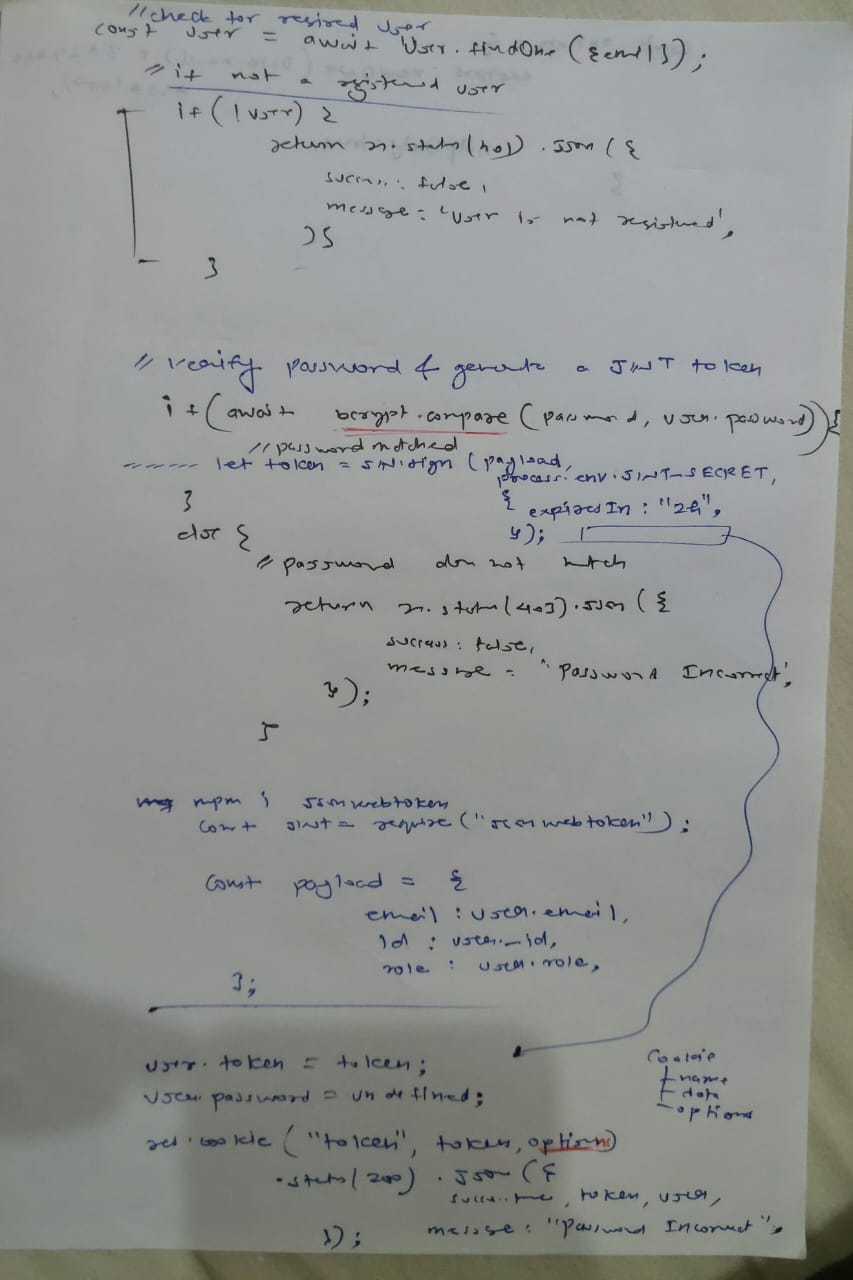 //check for resired User
const user = await User.findOne ({email});
// if not a registered user
if (!user) {
return res.status(401).json ({
success: false,
message: 'User is not registered',
});
}
// verify password & generate a JWT token
if (await bcrypt.compare (password, user.password)) {
// password matched
let token = jwt.sign (payload,
process.env.JWT_SECRET,
{
expiresIn : "2h",
});
}
else {
// password does not match
return res.status(403).json ({
success: false,
message: "Password Incorrect",
});
}
npm i jsonwebtoken
const jwt = require("jsonwebtoken");
const payload = {
email : user.email,
id : user._id,
role : user.role,
};
user.token = token;
user.password = undefined;
Cookie
name
data
options
res.cookie ("token", token, options)
.status(200).json ({
success: true, token, user,
message: "Password Incorrect",
});